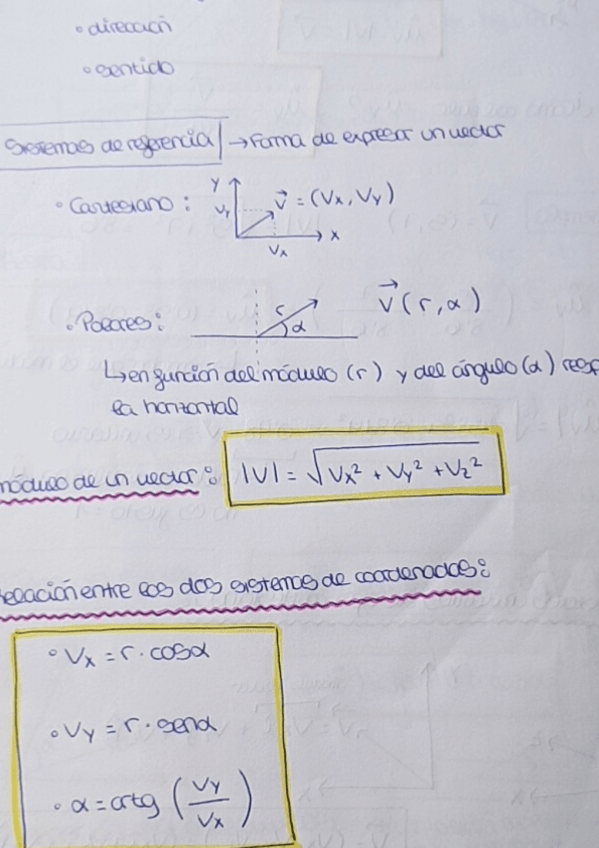 • dirección
• sentido
Sistemas de referencia → Forma de expresar un vector
• Cartesiano: Y Vy V⃗ = (Vx, Vy) X Vx
• Polares: r α V⃗ (r, α)
↳ en función del módulo (r) y del ángulo (α) resp
la horizontal
módulo de un vector: |V| = √Vx² + Vy² + Vz²
Relación entre los dos sistemas de coordenadas:
• Vx = r · cosα
• Vy = r · senα
• α = artg (Vy/Vx)